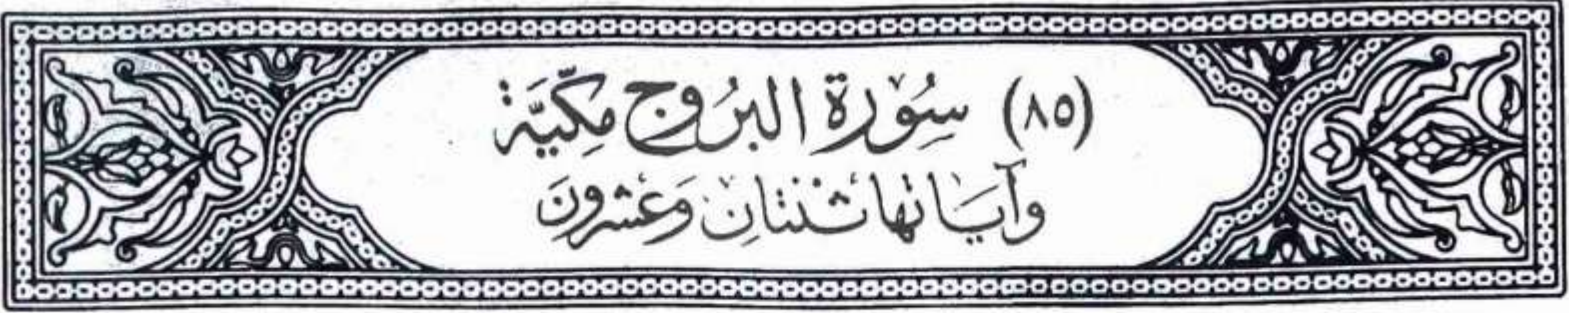 (٨٥) سُورَة البُرُوج مَكِّيَّة
وَآيَاتهَا ثنْتَانِ وَعشرونَ